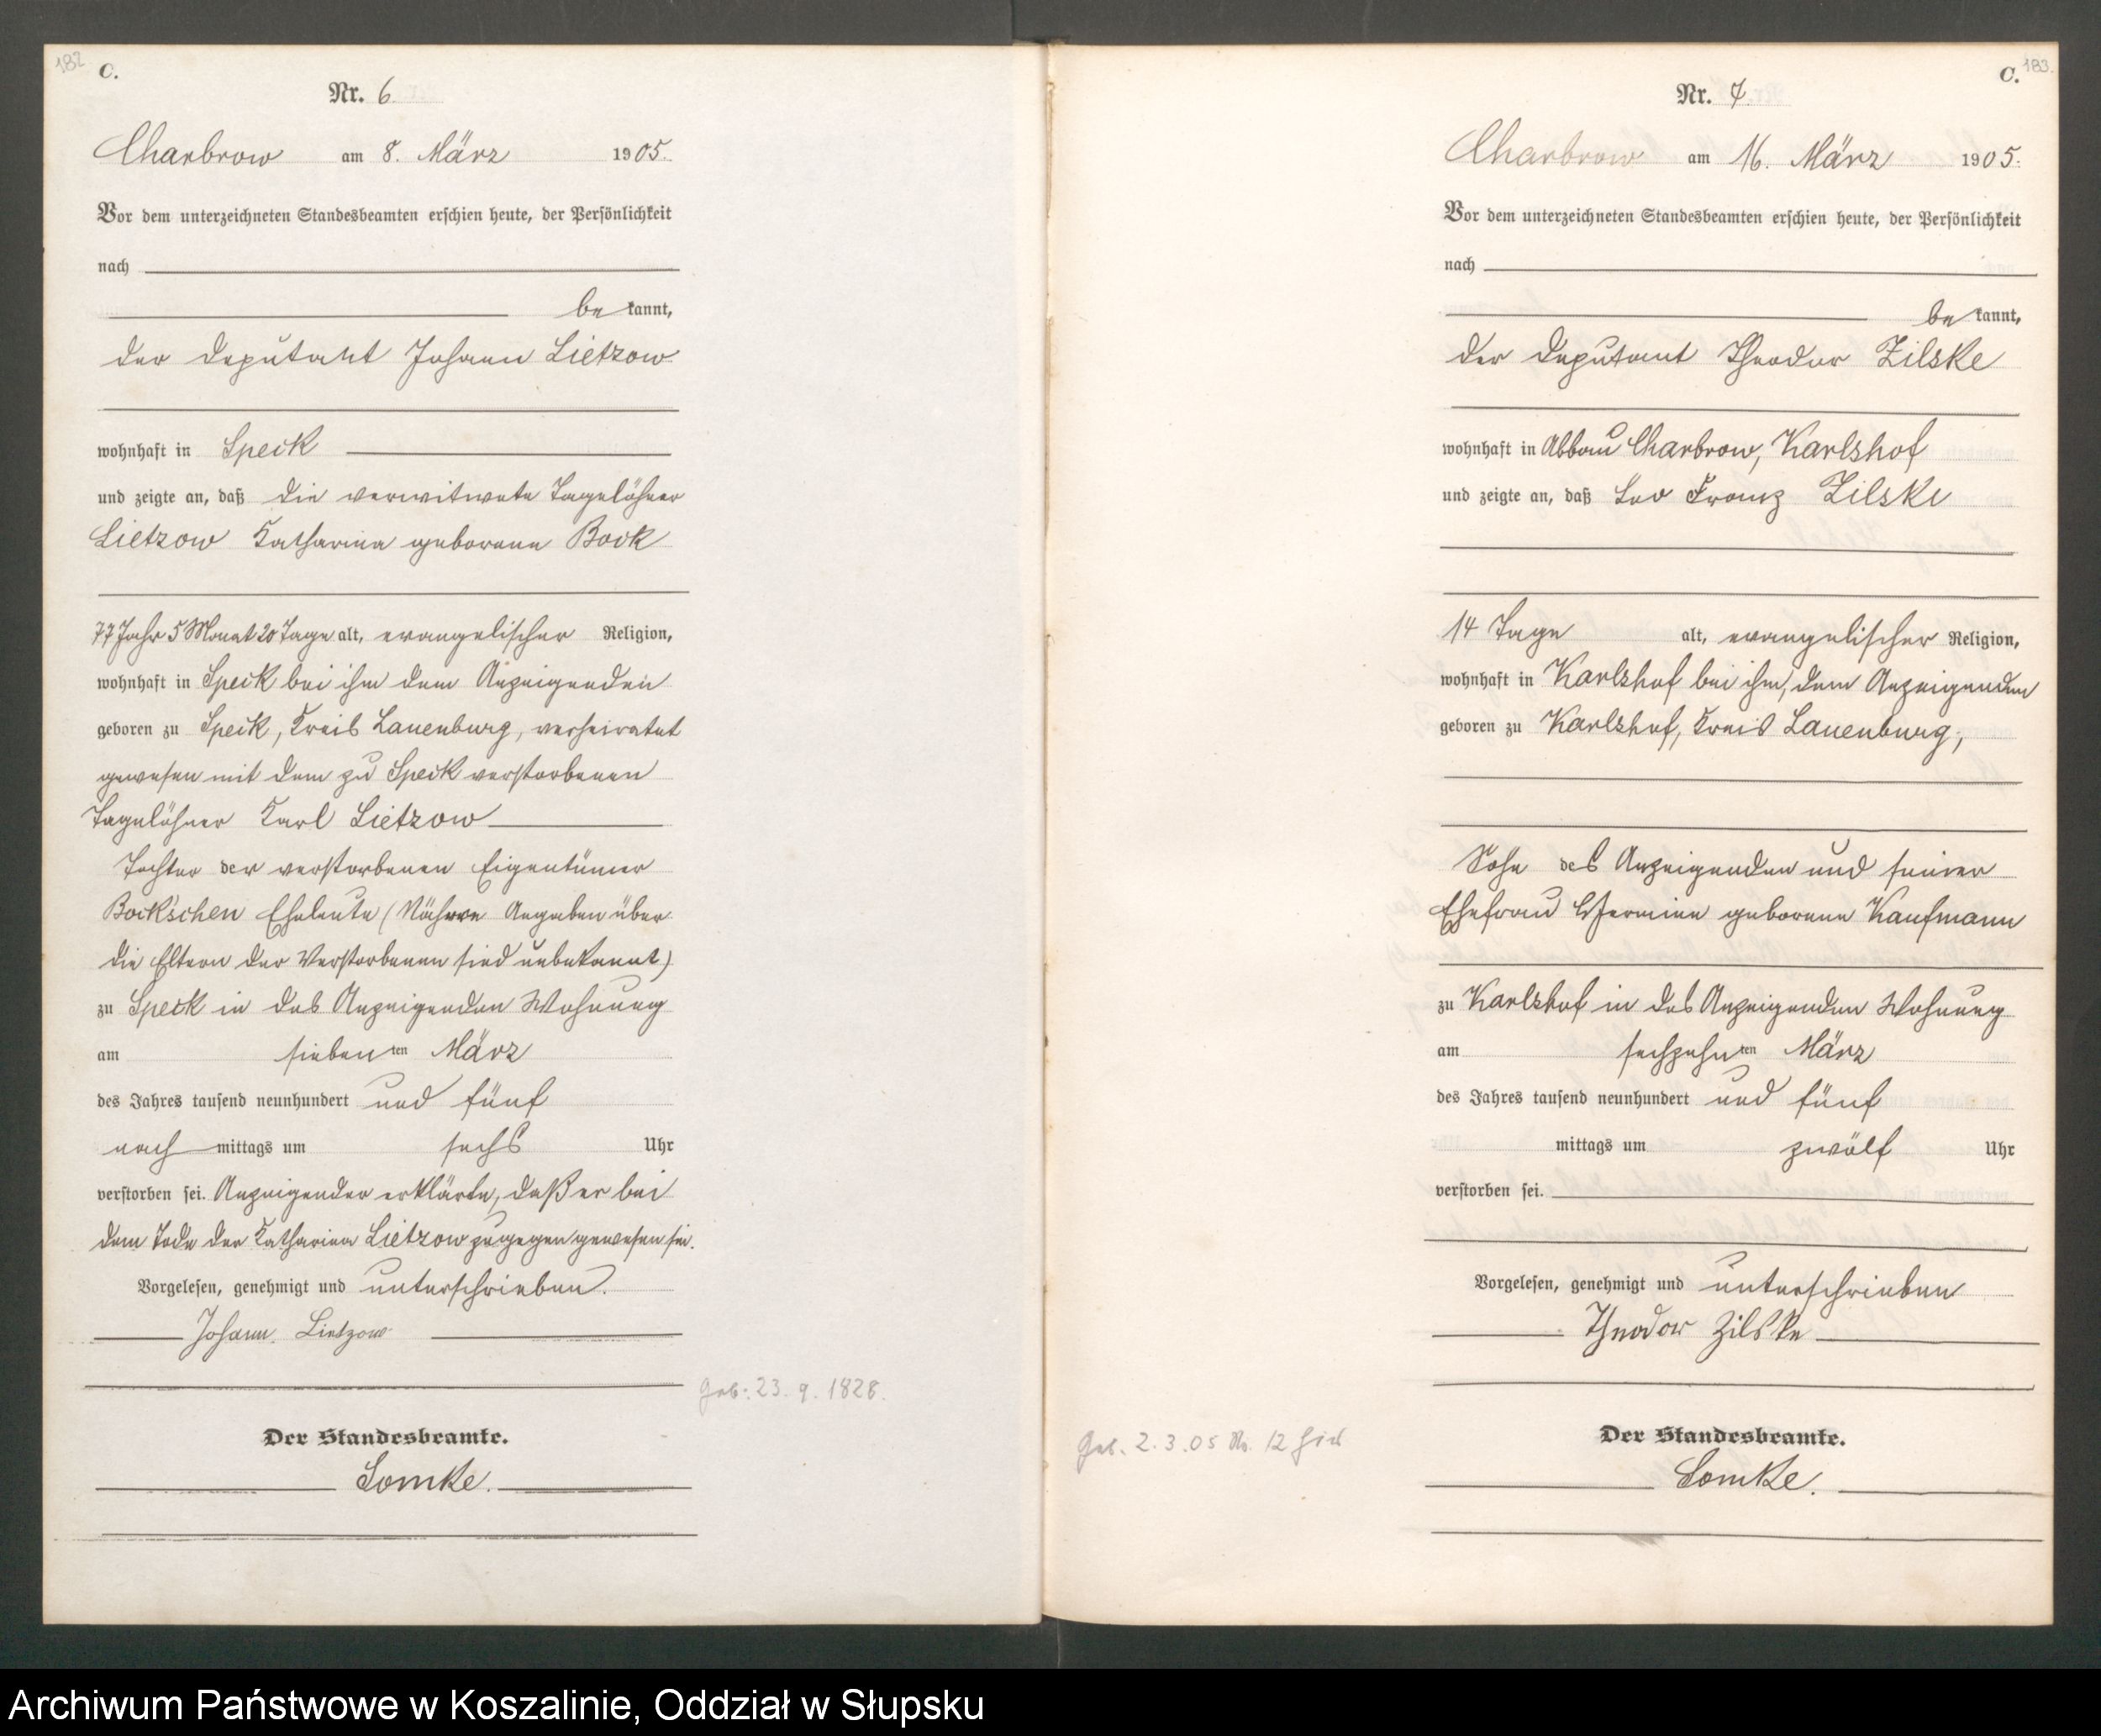 182
C.
Nr. 6
Charbrow am 8. März 1905.
Vor dem unterzeichneten Standesbeamten erschien heute, der Persönlichkeit
nach
be kannt,
der Deputant Johann Lietzow
wohnhaft in Speck
und zeigte an, daß die verwitwete Tagelöhner
Lietzow Katharina geborene Bock
77 Jahr 5 Monat 20 Tage alt, evangelischer Religion,
wohnhaft in Speck bei ihm dem Anzeigenden
geboren zu Speck, Kreis Lauenburg, verheiratet
gewesen mit dem zu Speck verstorbenen
Tagelöhner Karl Lietzow
Tochter der verstorbenen Eigentümer
Bock'schen Eheleute (Nähere Angaben über
die Eltern der Verstorbenen sind unbekannt)
zu Speck in des Anzeigenden Wohnung
am siebenten März
des Jahres tausend neunhundert und fünf
nach mittags um sechs Uhr
verstorben sei. Anzeigender erklärte, daß er bei
dem Tode der Katharina Lietzow zugegen gewesen sei.
Vorgelesen, genehmigt und unterschrieben.
Johann Lietzow
Geb. 23. 9. 1828.
Der Standesbeamte.
Lomke.
183.
C.
Nr. 7.
Charbrow am 16. März 1905.
Vor dem unterzeichneten Standesbeamten erschien heute, der Persönlichkeit
nach
be kannt,
der Deputant Theodor Zilske
wohnhaft in Abbau Charbrow, Karlshof
und zeigte an, daß Leo Franz Zilske
14 Tage alt, evangelischer Religion,
wohnhaft in Karlshof bei ihm, dem Anzeigenden
geboren zu Karlshof, Kreis Lauenburg,
Sohn des Anzeigenden und seiner
Ehefrau Hermine geborene Kaufmann
zu Karlshof in des Anzeigenden Wohnung
am sechzehnten März
des Jahres tausend neunhundert und fünf
mittags um zwölf Uhr
verstorben sei.
Vorgelesen, genehmigt und unterschrieben
Theodor Zilske
Geb. 2.3.05 No. 12
Der Standesbeamte.
Lomke.
Archiwum Państwowe w Koszalinie, Oddział w Słupsku